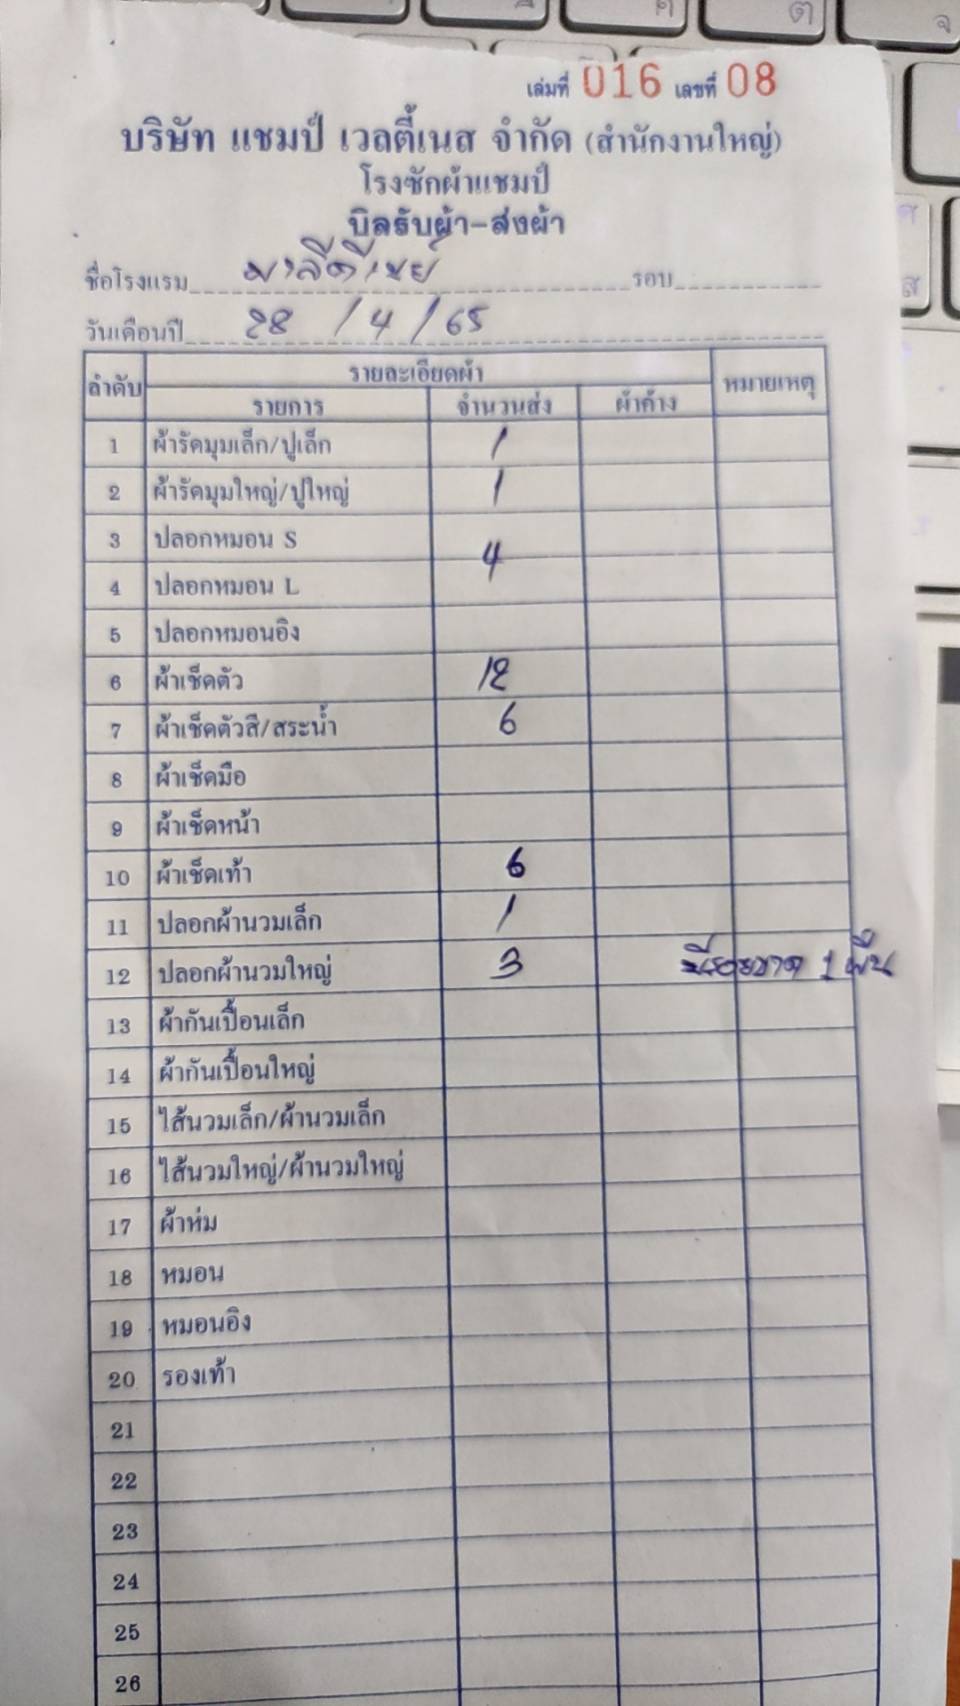 เล่มที่ 016 เลขที่ 08
บริษัท แชมป์ เวลตี้เนส จำกัด (สำนักงานใหญ่)
โรงซักผ้าแชมป์
บิลรับผ้า-ส่งผ้า
ชื่อโรงแรม รอบ
วันเดือนปี 28 / 4 / 65
ลำดับ รายละเอียดผ้า หมายเหตุ
รายการ จำนวนส่ง ผ้าค้าง
1 ผ้ารัดมุมเล็ก/ปูเล็ก 1
2 ผ้ารัดมุมใหญ่/ปูใหญ่ 1
3 ปลอกหมอน S 4
4 ปลอกหมอน L
5 ปลอกหมอนอิง
6 ผ้าเช็ดตัว 12
7 ผ้าเช็ดตัวสี/สระน้ำ 6
8 ผ้าเช็ดมือ
9 ผ้าเช็ดหน้า
10 ผ้าเช็ดเท้า 6
11 ปลอกผ้านวมเล็ก 1
12 ปลอกผ้านวมใหญ่ 3 มีรอยขาด 1 ผืน
13 ผ้ากันเปื้อนเล็ก
14 ผ้ากันเปื้อนใหญ่
15 ไส้นวมเล็ก/ผ้านวมเล็ก
16 ไส้นวมใหญ่/ผ้านวมใหญ่
17 ผ้าห่ม
18 หมอน
19 หมอนอิง
20 รองเท้า
21
22
23
24
25
26